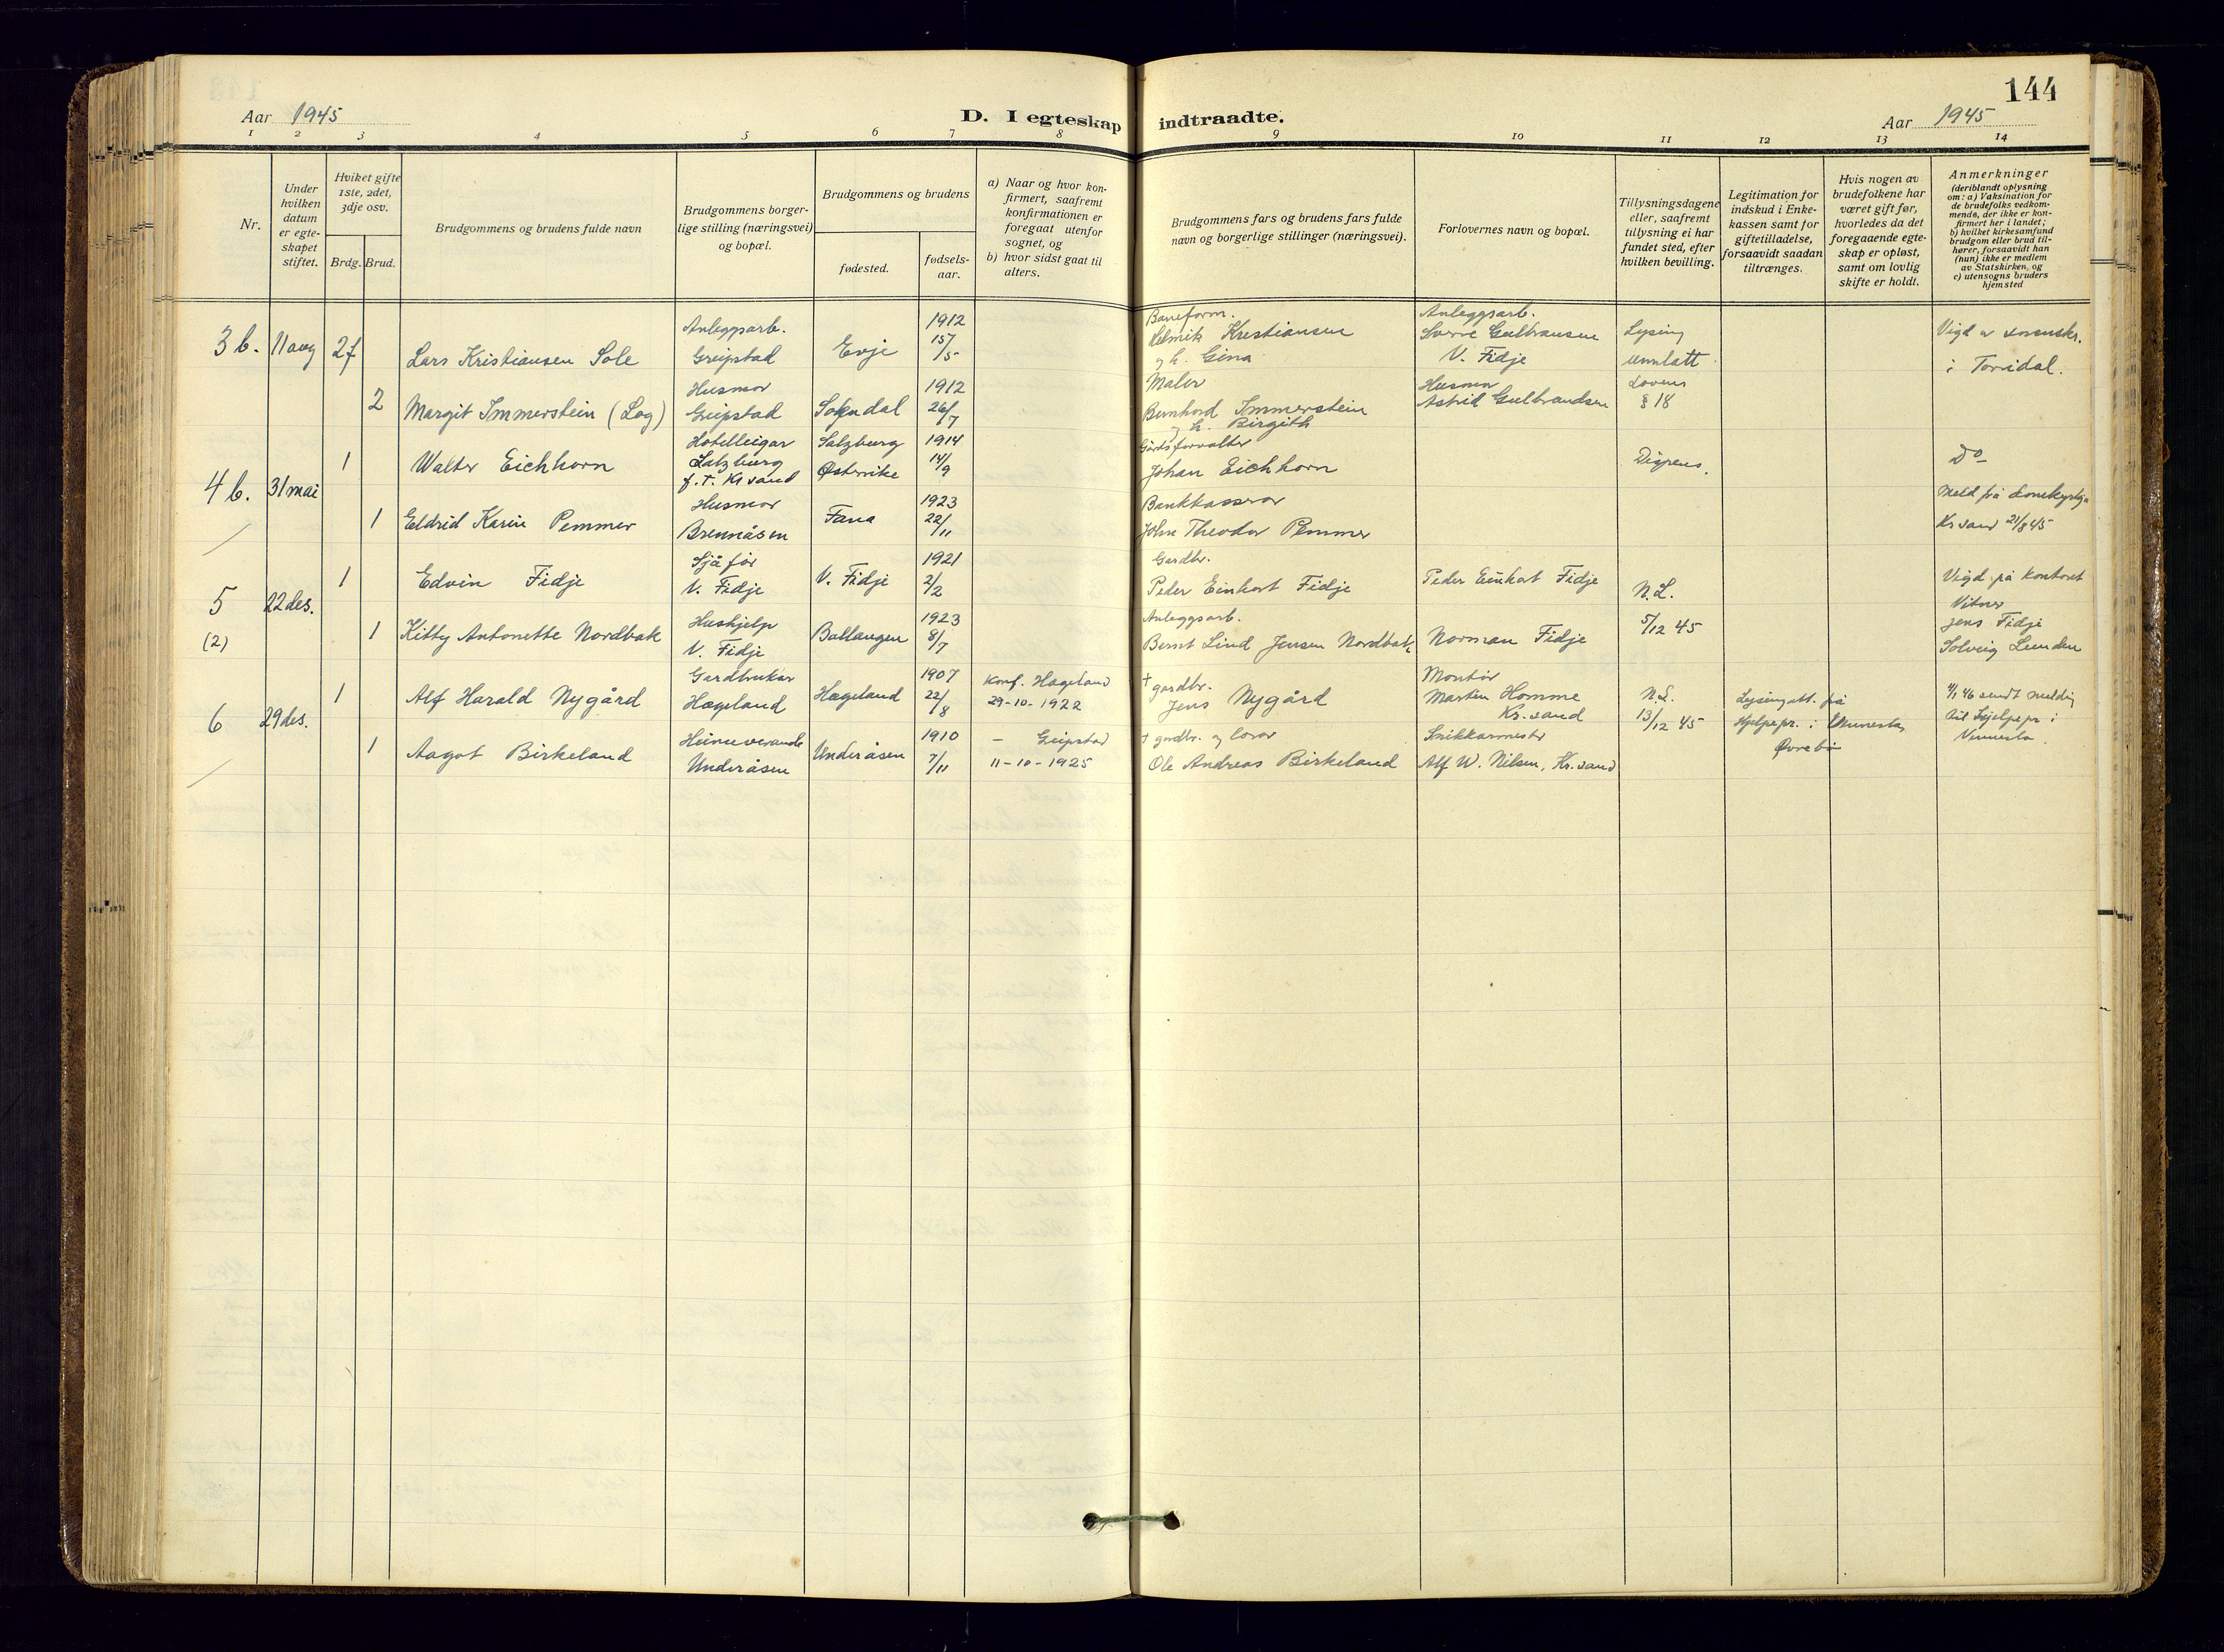 144
Aar 1945
D. I egteskap indtraadte.
Aar 1945
1 2 3 4 5 6 7 8 9 10 11 12 13 14
Nr.
Under
hvilken
datum
er egte-
skapet
stiftet.
Hviket gifte
1ste, 2det,
3dje osv.
Brdg. Brud.
Brudgommens og brudens fulde navn
Brudgommens borger-
lige stilling (næringsvei)
og bopæl.
Brudgommens og brudens
fødested.
fødsels-
aar.
a) Naar og hvor kon-
firmert, saafremt
konfirmationen er
foregaat utenfor
sognet, og
b) hvor sidst gaat til
alters.
Brudgommens fars og brudens fars fulde
navn og borgerlige stillinger (næringsvei).
Forlovernes navn og bopæl.
Tillysningsdagene
eller, saafremt
tillysning ei har
fundet sted, efter
hvilken bevilling.
Legitimation for
indskud i Enke-
kassen samt for
giftetilladelse,
forsaavidt saadan
tiltrænges.
Hvis nogen av
brudefolkene har
været gift før,
hvorledes da det
foregaaende egte-
skap er opløst,
samt om lovlig
skifte er holdt.
Anmerkninger
(deriblandt oplysning
om: a) Vaksination for
de brudefolks vedkom-
mende, der ikke er kon-
firmert her i landet;
b) hvilket kirkesamfund
brudgom eller brud til-
hører, forsaavidt han
(hun) ikke er medlem
av Statskirken, og
c) utensogns bruders
hjemsted
3 b. 11 aug 2f
Lars Kristiansen Sole
Anleggsarb.
Greipstad
Evje
1912
15/5
Baneform.
Kristiansen
og h. Gina
Anleggsarb.
Sverre Gulbransen
V. Fidje
Lysing
unnlatt
Lovens
§ 18
Vigd av sorenskr.
i Torridal.
2
Margit Immerstein (Log)
Husmor
Greipstad
Sokndal
1912
26/7
Maler
Bernhard Immerstein
og h. Birgith
Husmor
Astrid Gulbrandsen
4 b. 31 mai
1
Walter Eichhorn
Hotelleigar
Salzburg
f. t. Kr sand
Salzburg
Østerrike
1914
14/9
Gårdsforvalter
Johan Eichhorn
Dispens.
Do
1
Eldrid Karin Pemmer
Husmor
Brennåsen
Fana
1923
22/11
Bankkasserar
John Theodor Pemmer
Meld frå domkyrkja
Kr sand 21/8 45
5 22 des.
(2)
1
Edvin Fidje
Sjåfør
V. Fidje
V. Fidje
1921
2/2
Gardbr.
Peder Einhart Fidje
Peder Einhart Fidje
N. L.
5/12 45
Vigd på kontoret
Vitner
Jens Fidje
Solveig Lunden
1
Kitty Antonette Nordbak
Hushjelp
V. Fidje
Ballangen
1923
8/7
Anleggsarb.
Bernt Lind Jensen Nordbak
Norman Fidje
6 29 des.
1
Alf Harald Nygård
Gardbrukar
Hægeland
Hægeland
1907
22/8
Konf. Hægeland
29-10-1922
+ gardbr.
Jens Nygård
Montør
Martin Homme
Kr. sand
N. L.
13/12 45
Lysingsatt. frå
hjelpepr. i Vennesla
Øvrebø
4/1 46 sendt melding
til hjelpepr i
Vennesla.
1
Aagot Birkeland
Heimeverande
Underåsen
Underåsen
1910
7/11
– Greipstad
11-10-1925
+ gardbr. og lærar
Ole Andreas Birkeland
Snikkarmester
Alf W. Nilsen, Kr. sand